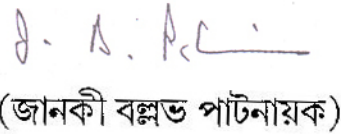 J. B. P
(জানকী বল্লভ পাটনায়ক)